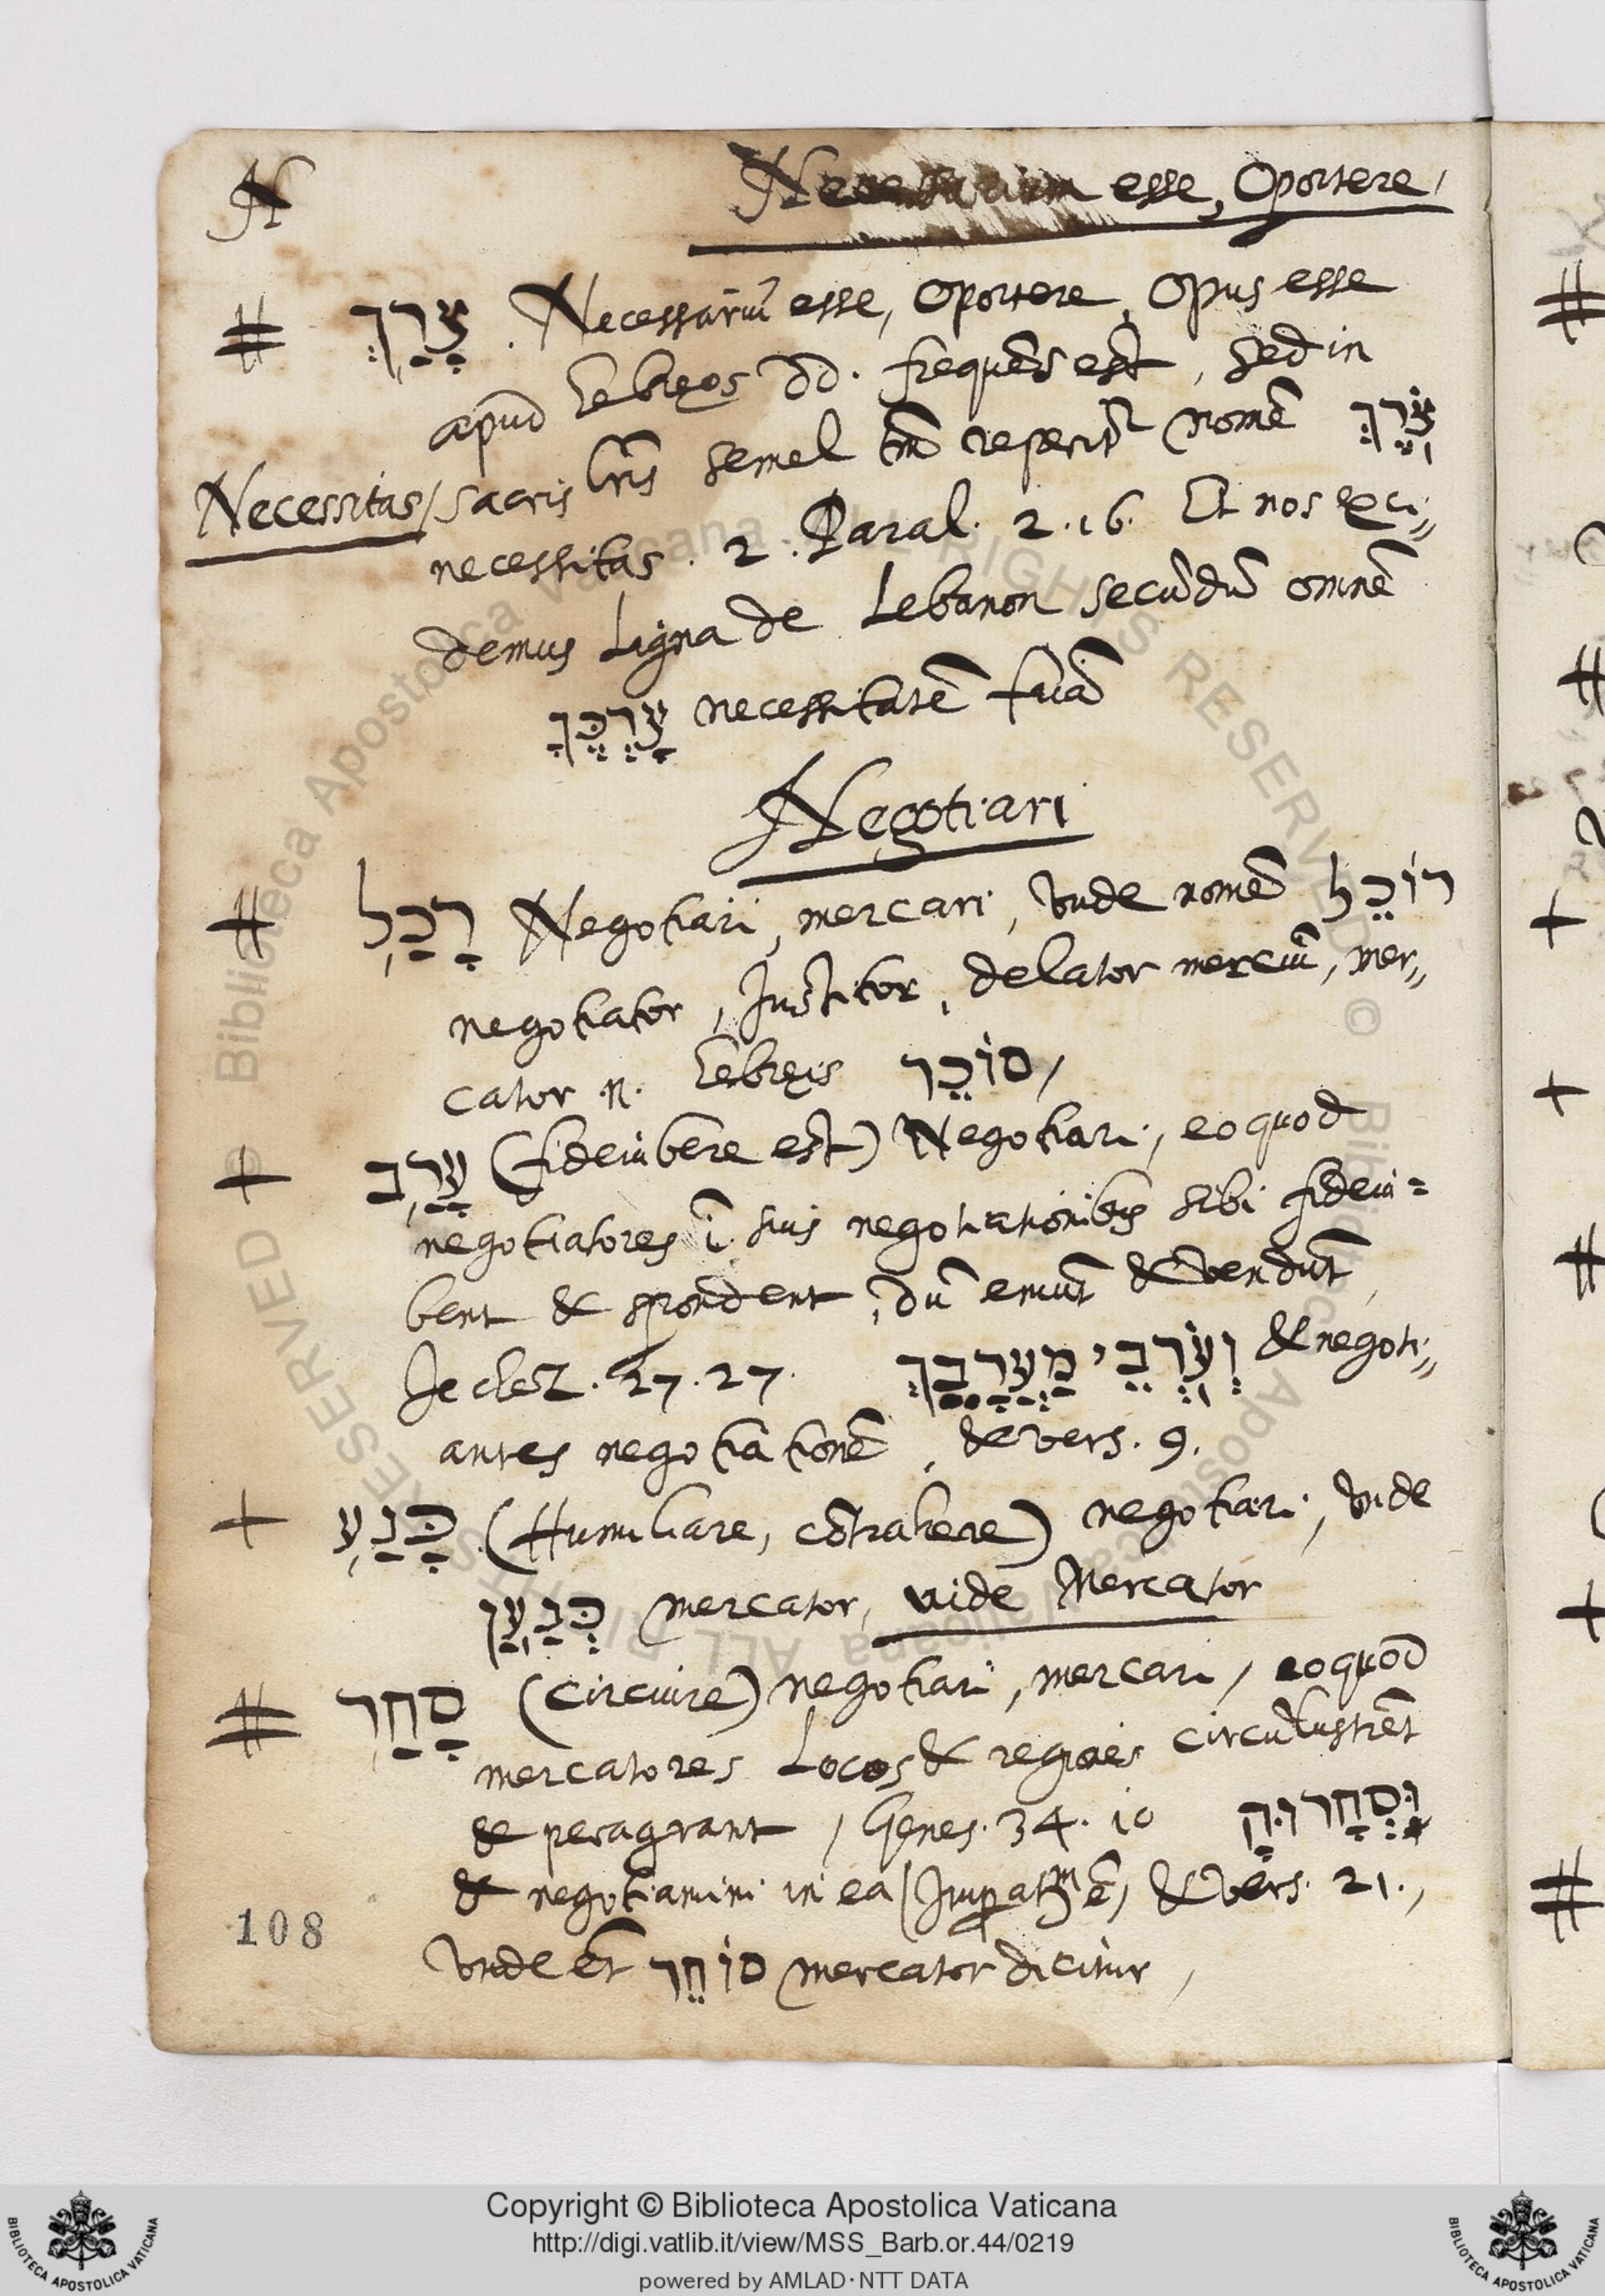 N
Necessarium esse, Oportere,
# צָרַךְ . Necessariũ esse, Oportere, Opus esse
apud Hebręos dd. frequẽs est, sed in
Necessitas / sacris lr̃is semel tm̃ reperit͂r nomẽ צֹרֶךְ
necessitas. 2. Paral. 2. 16. Et nos ce,,
demus Ligna de Lebanon secũdũ omnẽ
צָרְכֶּךָ necessitatẽ tuã
Negotiari
# רָכַל Negotiari, mercari, vnde nomẽ רוֹכֵל
negotiator, Institor, delator merciũ, mer,,
cator .n. Hebręis סוֹכֵר,
+ עָרַב (fideiubere est) Negotiari, eo quod
negotiatores ĩ suis negotiationibus sibi fideiu=
bent & spondent, dũ emũt & vendũt,
Iechez. 27. 27. וְעֹרְבֵי מַעֲרָבֵךְ & negoti,,
antes negotiationẽ, & vers. 9.
+ כָּנַע (Humiliare, cõtrahere) negotiari, vnde
כְּנַעַן mercator, vide Mercator
# סָחַר (Circuire) negotiari, mercari, eo quod
mercatores Locos & regiones circũlustrẽt
& peragrant, Genes. 34. 10 וּסְחָרוּהָ
& negotiamini in ea / & vers. 21.,
Vnde et̃ סוֹחֵר mercator dicitur,
108
Copyright © Biblioteca Apostolica Vaticana
http://digi.vatlib.it/view/MSS_Barb.or.44/0219
powered by AMLAD·NTT DATA
BIBLIOTECA APOSTOLICA VATICANA
BIBLIOTECA APOSTOLICA VATICANA